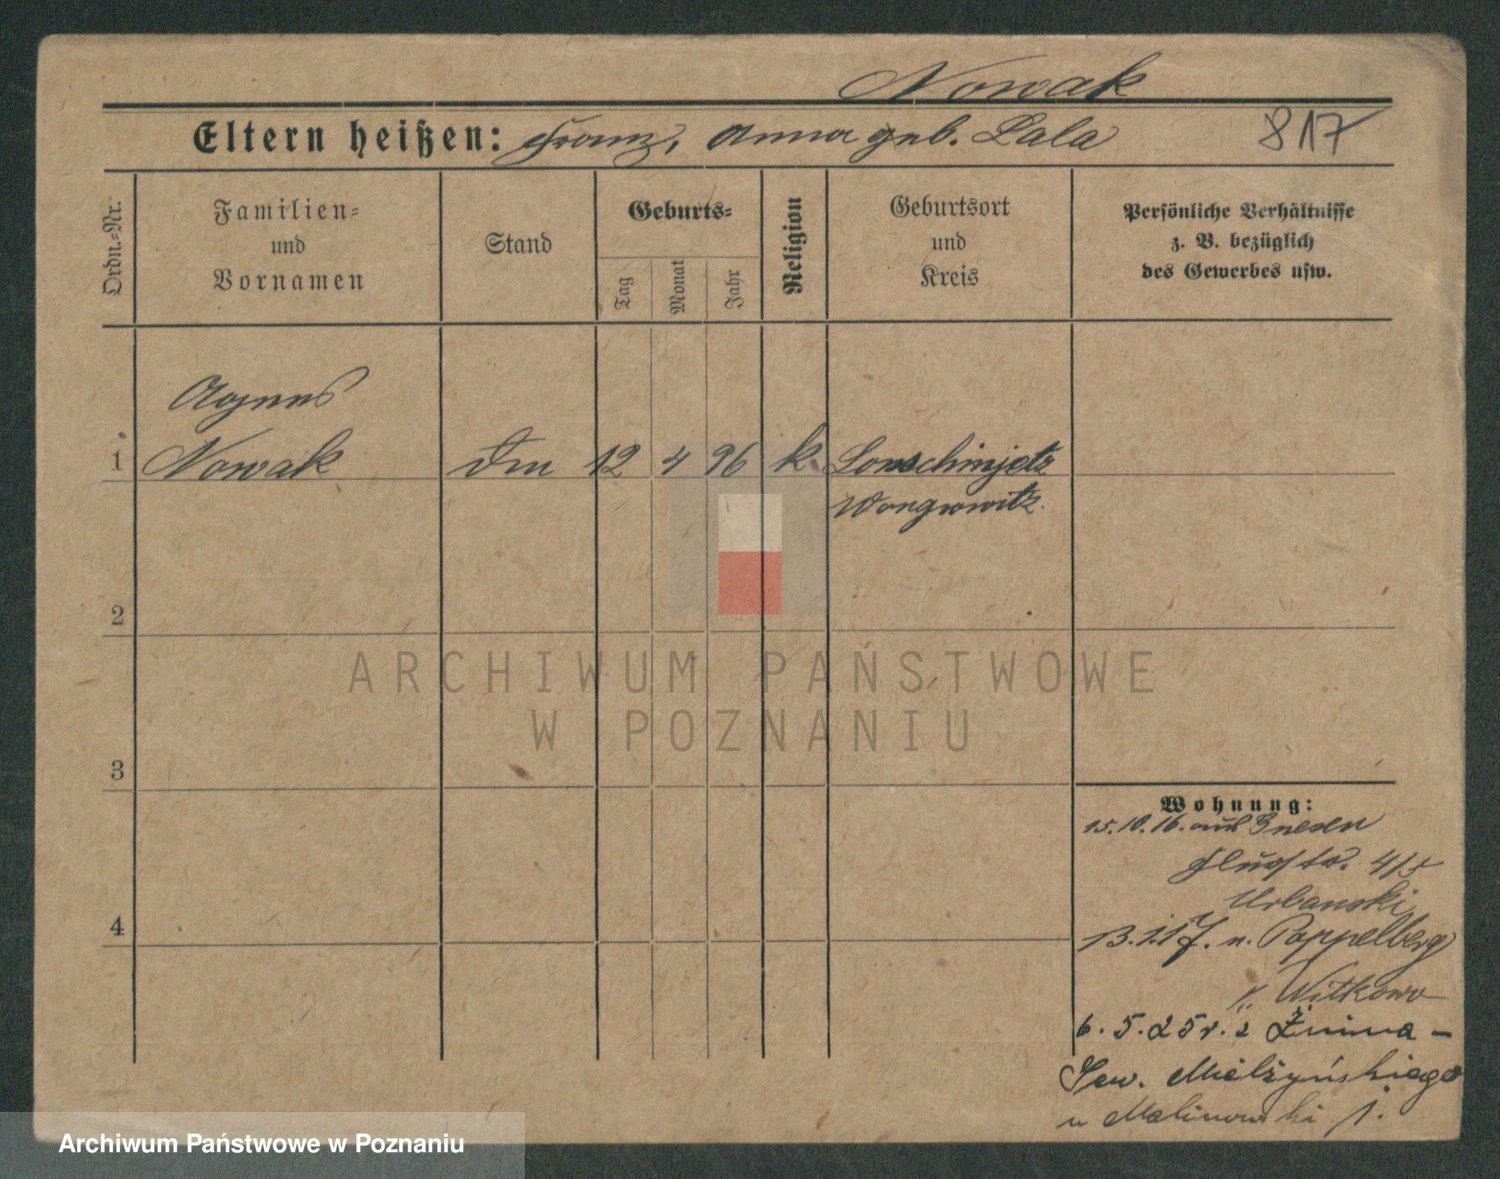 Nowak
Eltern heißen: Franz, Anna geb. Lala
817
Ordn.-Nr.
Familien-
und
Vornamen
Stand
Geburts-
Tag
Monat
Jahr
Religion
Geburtsort
und
Kreis
Persönliche Verhältnisse
z. B. bezüglich
des Gewerbes usw.
Agnes
1 Nowak 12 4 96 k.
Wongrowitz.
2
3
4
Wohnung:
15.10.16. aus Gnesen
4/5
Urbanski
13.1.17. n. Pappelberg
k. Witkowo
6. 5. 25 r. z Żnina -
Sew. Mielżyńskiego
u Malinowski j.
ARCHIWUM PAŃSTWOWE
W POZNANIU
Archiwum Państwowe w Poznaniu